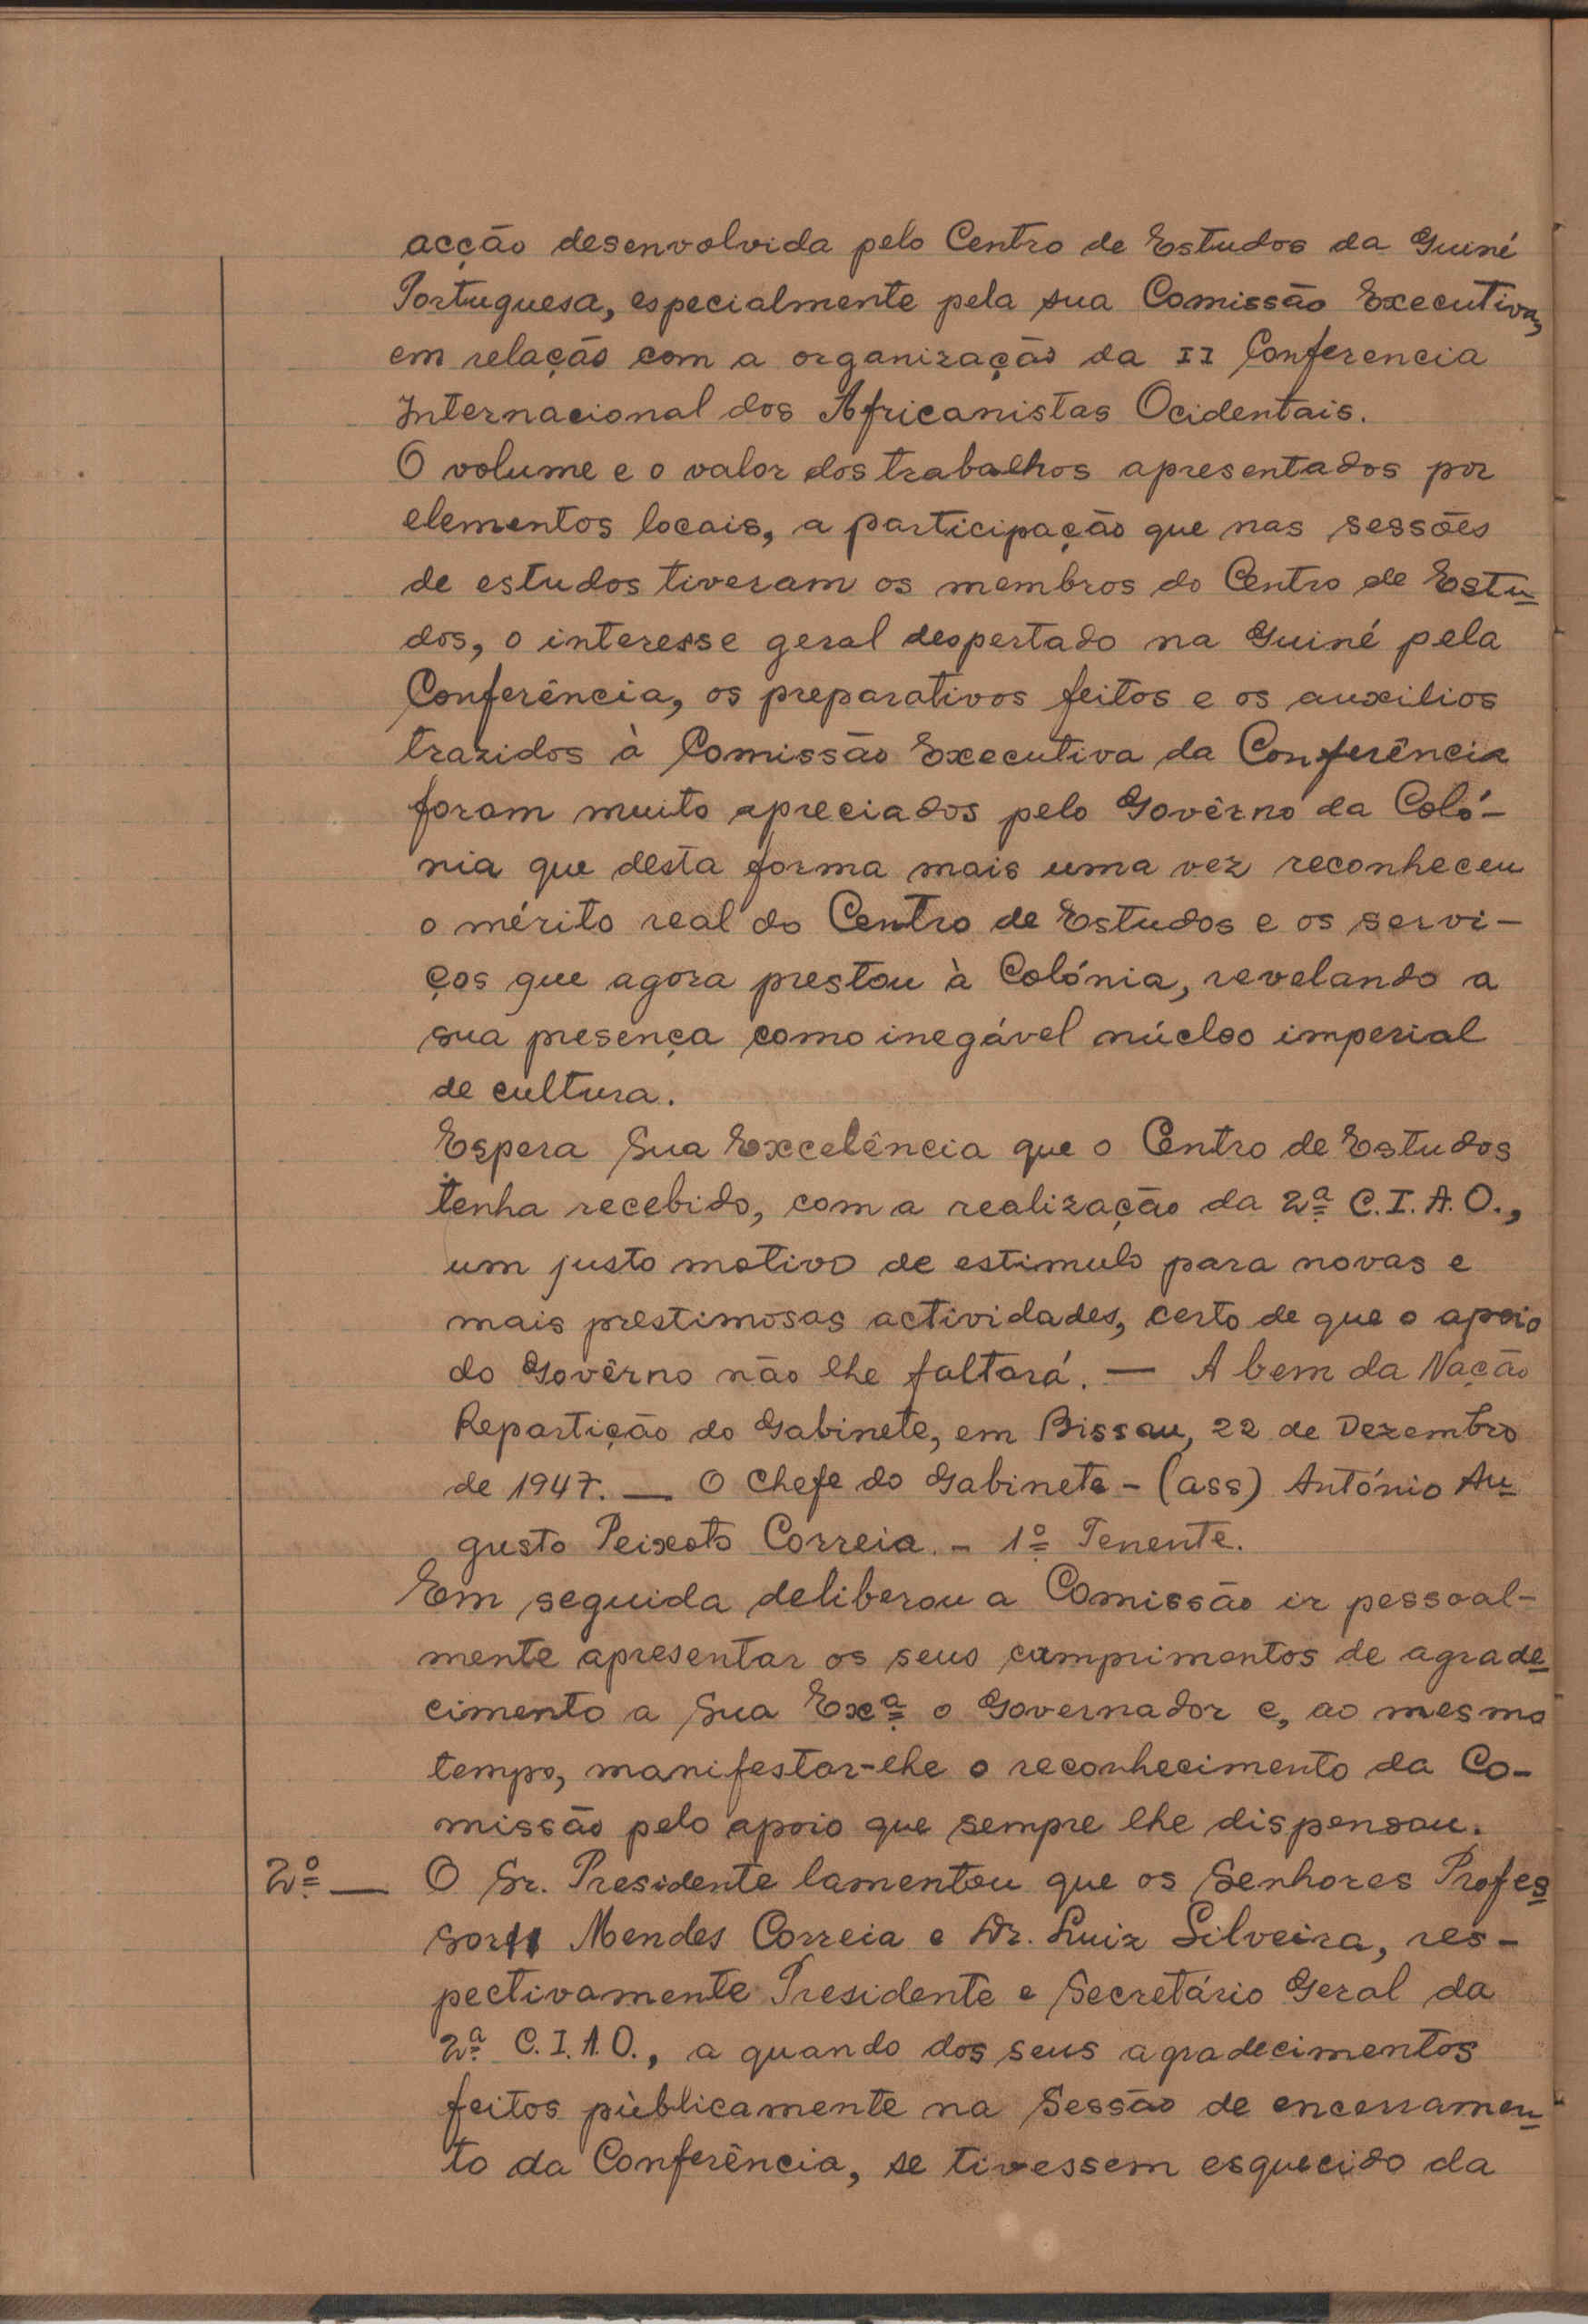 acção desenvolvida pelo Centro de Estudos da Guiné
Portuguesa, especialmente pela sua Comissão Executiva,
em relação com a organização da II Conferencia
Internacional dos Africanistas Ocidentais.
O volume e o valor dos trabalhos apresentados por
elementos locais, a participação que nas sessões
de estudos tiveram os membros do Centro de Estu-
dos, o interesse geral despertado na Guiné pela
Conferência, os preparativos feitos e os auxilios
trazidos à Comissão Executiva da Conferência
foram muito apreciados pelo Govêrno da Coló-
nia que desta forma mais uma vez reconheceu
o mérito real do Centro de Estudos e os servi-
ços que agora prestou à Colónia, revelando a
sua presença como inegável núcleo imperial
de cultura.
Espera Sua Excelência que o Centro de Estudos
tenha recebido, com a realização da 2ª C.I.A.O.,
um justo motivo de estimulo para novas e
mais prestimosas actividades, certo de que o apoio
do Govêrno não lhe faltará. — A bem da Nação
Repartição do Gabinete, em Bissau, 22 de Dezembro
de 1947. — O Chefe do Gabinete - (ass) António Au-
gusto Peixoto Correia. - 1º Tenente.
Em seguida deliberou a Comissão ir pessoal-
mente apresentar os seus cumprimentos de agrade-
cimento a Sua Exª o Governador e, ao mesmo
tempo, manifestar-lhe o reconhecimento da Co-
missão pelo apoio que sempre lhe dispensou.
2º — O Sr. Presidente lamentou que os Senhores Profes-
sor Mendes Correia e Dr. Luiz Silveira, res-
pectivamente Presidente e Secretário Geral da
2ª C.I.A.O., a quando dos seus agradecimentos
feitos pùblicamente na Sessão de encerramen-
to da Conferência, se tivessem esquecido da